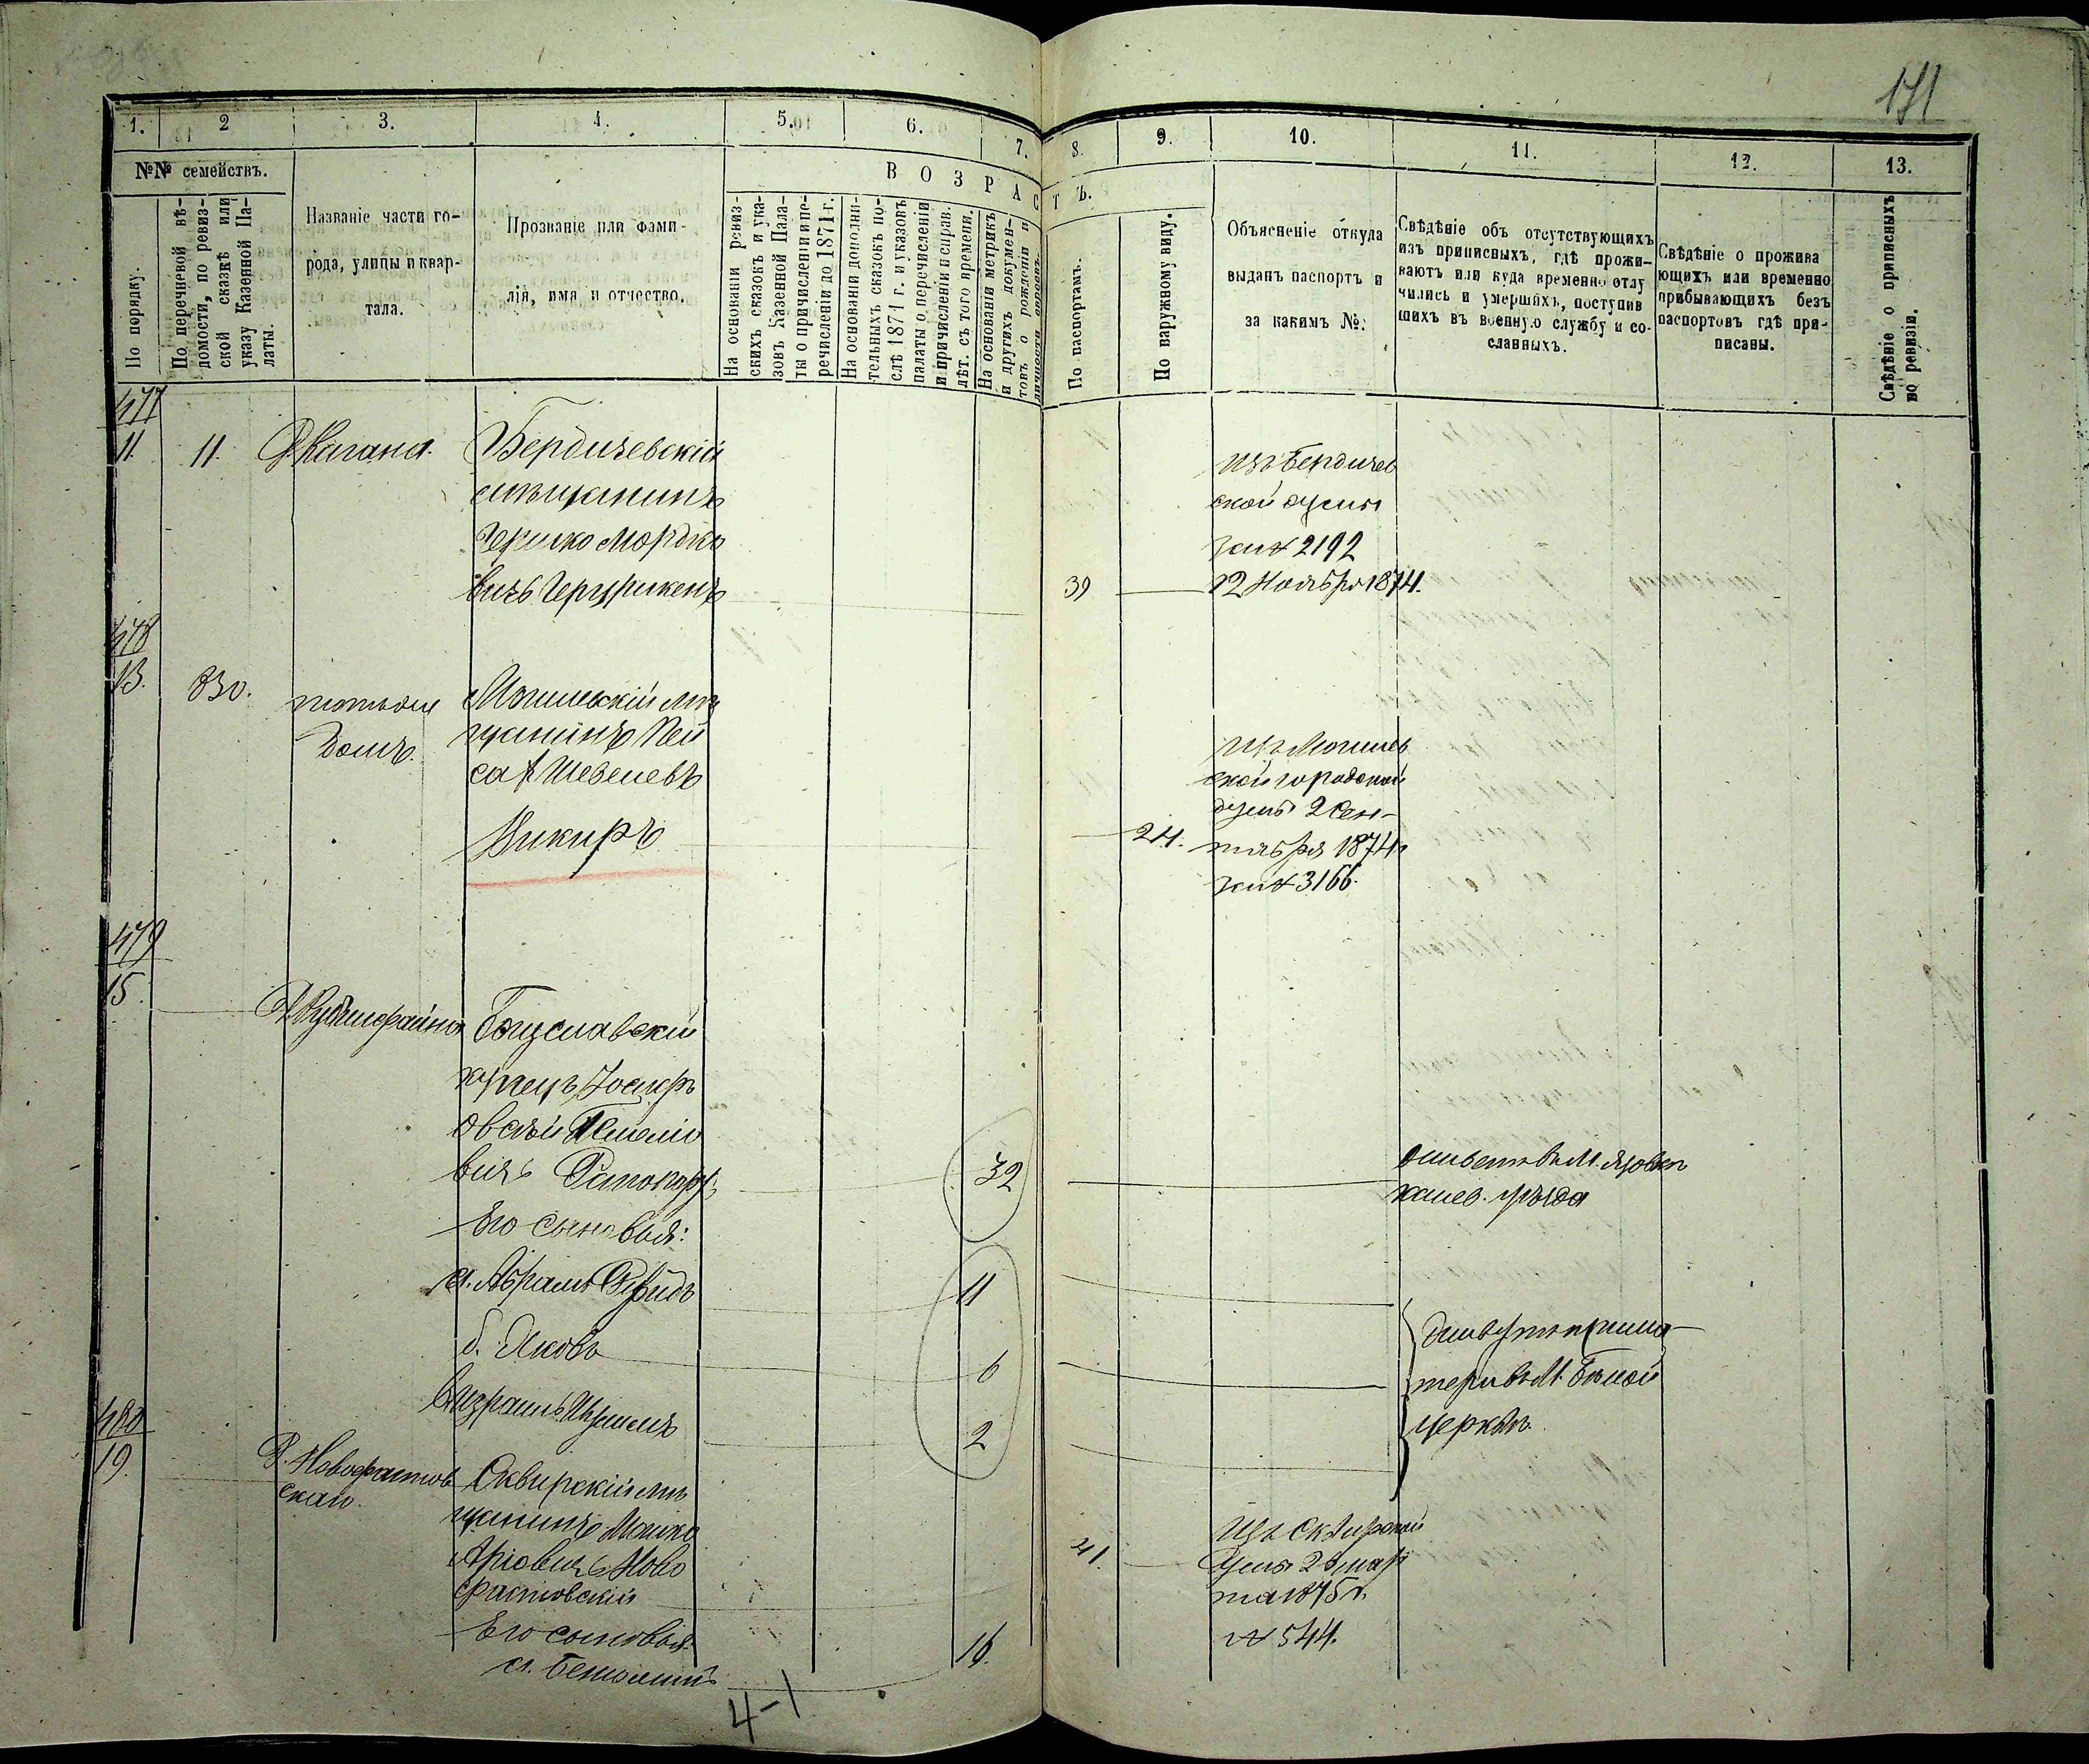 171
1.
2
3.
4.
5.
6.
7.
8.
9.
10.
11.
12.
13.
№№ семействъ.
По порядку.
По перечневой вѣ-
домости, по ревиз-
ской сказкѣ или
указу Казенной Па-
латы.
Названіе части го-
рода, улицы и квар-
тала.
Прозваніе или фами-
лія, имя и отчество.
ВОЗРАСТЪ.
На основаніи ревиз-
скихъ сказокъ и ука-
зовъ Казенной Пала-
ты о причисленіи и пе-
речисленіи до 1871 г.
На основаніи дополни-
тельныхъ сказокъ по-
слѣ 1871 г. и указовъ
палаты о перечисленіи
и причисленіи исправ.
лѣт. съ того времени.
На основаніи метрикъ
и другихъ докумен-
товъ о рожденіи и
По паспортамъ.
По наружному виду.
Объясненіе откуда
выданъ паспортъ и
за какимъ №.
Свѣдѣніе объ отсутствующихъ
изъ приписныхъ, гдѣ прожи-
ваютъ или куда временно отлу
чились и умершихъ, поступив
шихъ въ военную службу и со-
сланныхъ.
Свѣдѣніе о прожива
ющихъ или временно
прибывающихъ безъ
паспортовъ гдѣ при-
писаны.
Свѣдѣніе о приписныхъ
по ревизіи.
477
11.
11.
Д Кагана.
Бердичевскій
мѣщанинъ
Гершко Мордко
вичъ
39
изъ Бердичев
ской думы
за № 2192
12 Ноября 1874.
478
13.
830.
тотъ же
домъ.
Могилевскій мѣ
щанинъ Пей
сах Шевелевъ
Викиръ
24.
изъ Могилев
ской городской
думы 2 Сен-
тября 1874
за № 3166.
479
15.
Богуславскій
купецъ Іосифъ
вичъ
32
Его сыновья:
а. Абрамъ
11
б. Яковъ
6
в Израиль
2
въ М.
канев. уѣзда
при ма
тери въ М. Бѣлой
церкви
480
19.
Д. Новофастов
скаго.
Сквирскій мѣ
щанинъ Мошко
Аріовичъ Ново
фастовскій
41
Изъ Сквирской
думы 26 мар
та 1875 г.
№ 544.
Его сыновья:
а.
16.
4-1